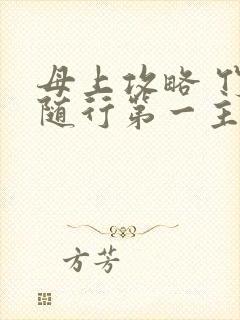 母上攻略
随行第一主
方芳